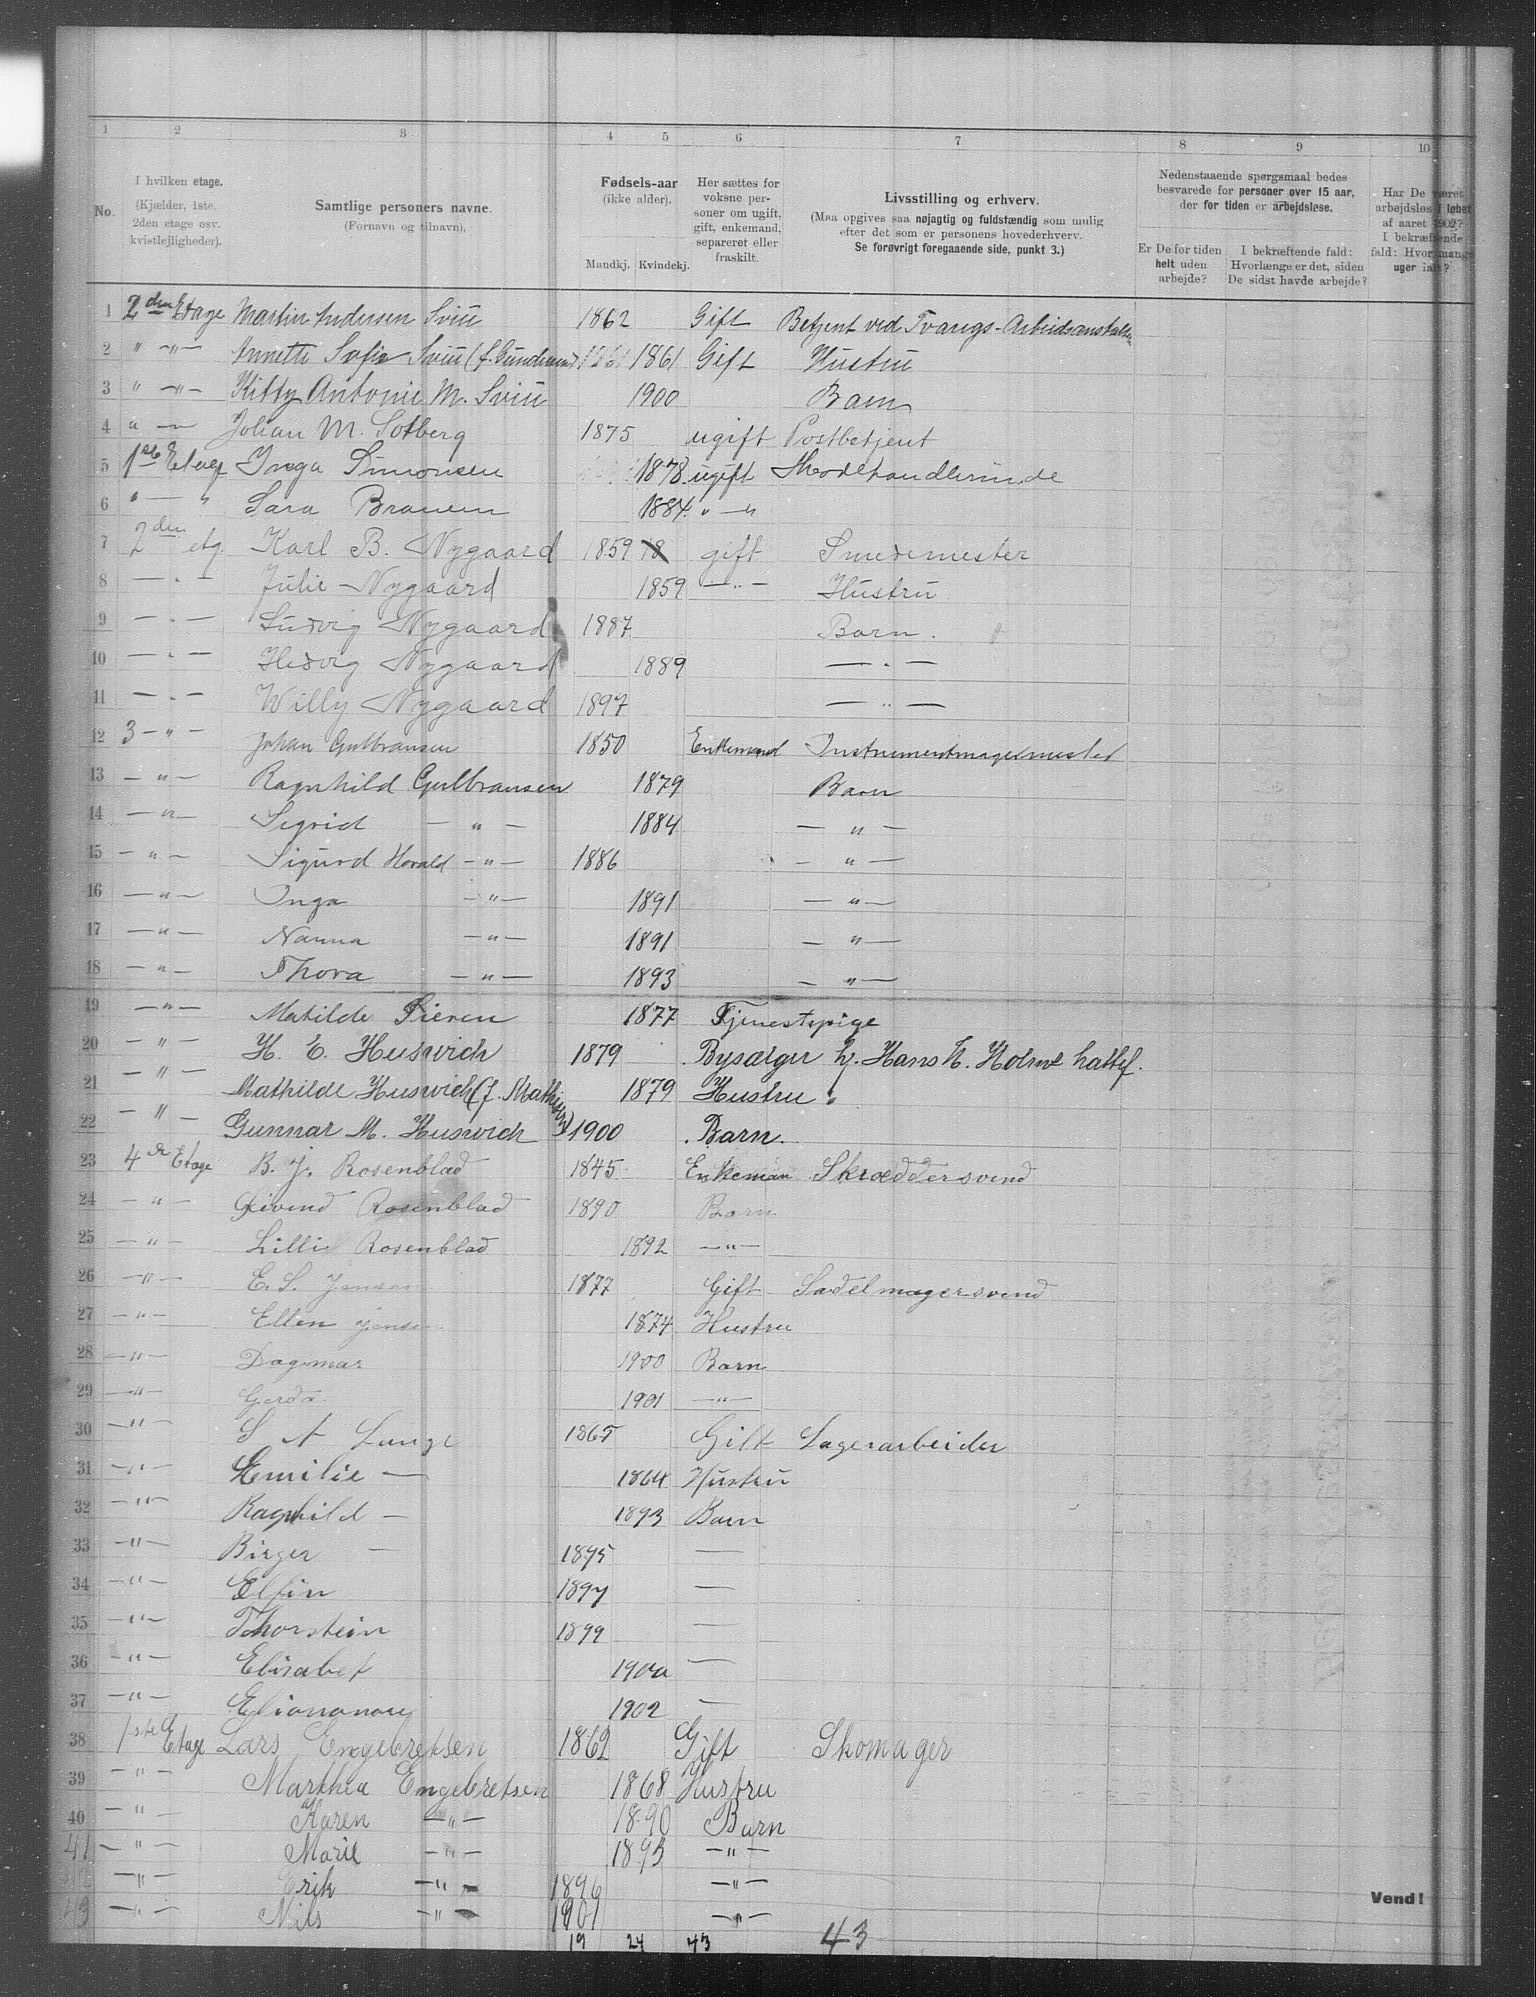 1 2 3 4 5 6 7 8 9 10
No. I hvilken etage. (Kjælder, 1ste, 2den etage osv. kvistlejligheder). Samtlige personers navne. (Fornavn og tilnavn). Fødsels-aar (ikke alder). Mandkj. Kvindekj. Her sættes for voksne personer om ugift, gift, enkemand, separeret eller fraskilt. Livsstilling og erhverv. (Maa opgives saa nøjagtig og fuldstændig som mulig efter det som er personens hovederhverv. Se forøvrigt foregaaende side, punkt 3.) Nedenstaaende spørgsmaal bedes besvarede for personer over 15 aar, der for tiden er arbejdsløse. Er De for tiden helt uden arbejde? I bekræftende fald: Hvorlænge er det, siden De sidst havde arbejde? Har De været arbejdsløs i løbet af aaret 1902? I bekræftende fald: Hvor mange uger ialt?
1 2den Etage Martin Andersen Sviu 1862 Gift Betjent ved Tvangs-Arbeidsanstalten
2 " —"— Annette Sofie Sviu 1861 Gift Hustru
3 " —"— Kitty Antonie M. Sviu 1900 Barn
4 " — Johan M. Solberg 1875 ugift Postbetjent
5 1ste Etage Inga Simonsen 1878 ugift Modehandlerinde
6 " — " Sara Brauen 1884 " — "
7 2den etg. Karl B. Nygaard 1859 18 gift Smedemester
8 — " — Julie Nygaard 1859 — " — Hustru
9 — " — Ludvig Nygaard 1887 Barn
10 — " — Hedvig Nygaard 1889 — " —
11 — " — Willy Nygaard 1897 — " —
12 3 — " — Johan Gulbransen 1850 Enkemand Instrumentmagermester
13 — " — Ragnhild Gulbransen 1879 Barn
14 — " — Sigrid — " — 1884 — " —
15 — " — Sigurd Harald — " — 1886 — " —
16 — " — Inga — " — 1891 — " —
17 — " — Nanna — " — 1891 — " —
18 — " — Thora — " — 1893 — " —
19 — " — Matilde 1877 Tjenestepige
20 — " — H. E. Huswich 1879 Bysælger h. Hans H. Holme hattef.
21 — " — Mathilde Huswich (f. Mathisen) 1879 Hustru
22 — " — Gunnar M. Huswich 1900 Barn.
23 4de Etage B. J. Rosenblad 1845 Enkeman Skræddersvend
24 — " — Eivind Rosenblad 1890 Barn
25 — " — Lillie Rosenblad 1892 — " —
26 — " — E. S. Jensen 1877 Gift Sadelmagersvend
27 — " — Ellen Jensen 1874 Hustru
28 — " — Dagmar 1900 Barn
29 — " — Gerda 1901 — " —
30 — " — S A Lunge 1865 Gift Lagerarbeider
31 — " — Emilie — 1864 Hustru
32 — " — Ragnhild — 1893 Barn
33 — " — Birger — 1895 —
34 — " — Elfin 1897 —
35 — " — Thorstein 1899 —
36 — " — Elisabet 1900 —
37 — " — 1902 —
38 1ste Etage Lars Engebretsen 1862 Gift Skomager
39 — " — Marthea Engebretsen 1868 Hustru
40 — " — Karen — " — 1890 Barn
41 — " — Marie — " — 1893 — " —
42 — " — Erik — " — 1896 — " —
43 — " — Nils — " — 1901 — " —
Vend!
19 24 43 43